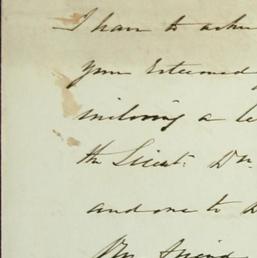 I have to ackn
your Esteemed
inclosing a le
the Lieut: Dn.
and one to D
My friend